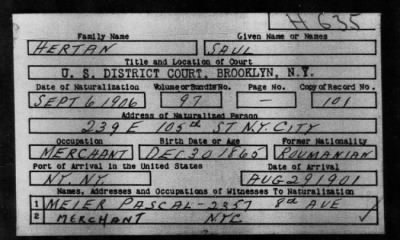 H 635
Family Name Given Name or Names
HERTAN SAUL
Title and Location of Court
U. S. DISTRICT COURT, BROOKLYN, N.Y.
Date of Naturalization Volume or Bundle No. Page No. Copy of Record No.
SEPT 6 1906 97 — 101
Address of Naturalized Person
239 E 105th ST N.Y. CITY
Occupation Birth Date or Age Former Nationality
MERCHANT DEC 30 1865 ROUMANIAN
Port of Arrival in the United States Date of Arrival
NY. NY. AUG 29 1901
Names, Addresses and Occupations of Witnesses To Naturalization
1 MEIER PASCAL - 2357 8th AVE
2 MERCHANT NYC